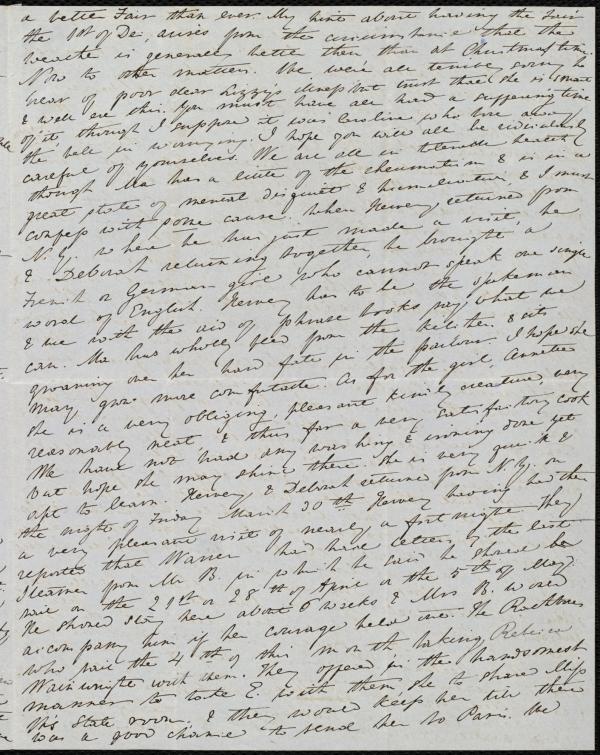 a better Fair than ever. My hint about having the Fair
the 1st of De. arises from the circumstance that the
weather is generally better then than at Christmas time.
Now to other matters. We were all terribly sorry to
hear of poor dear Lizzy's illness but trust that she is smart
& well ere this. You must have all had a suffering time
of it, though I suppose it was Caroline who bore away
the bell in worrying. I hope you will all be ridiculously
careful of yourselves. We are all in tolerable health
though Ma has a little of the rheumatism & is in a
great state of mental disquiet & humiliation, & I must
confess with some cause. When Hervey returned from
N. Y. where he has just made a visit, he
& Deborah returning together, he brought a
French or German girl who cannot speak one single
word of English. Hervey has to be the spokesman
& we with the aid of phrase books pay what we
can. Ma has wholly fled from the kitchen & sits
groaning over her hard fate in the parlour. I hope she
may grow more comfortable. As for the girl, Annette
she is a very obliging, pleasant kindly creature, very
reasonably neat & thus far a very satisfactory cook
We have not had any washing & ironing done yet
but hope she may shine there. She is very quick &
apt to learn. Hervey & Deborah returned from N. Y. on
the night of Friday March 30th Hervey having had then
a very pleasant visit of nearly a fortnight. They
reported that Warren had had letters by the last
steamer from Mr B. in which he said he should
sail on the 21st or 28th of April or the 5th of May.
He should stay here about 6 weeks & Mrs B. would
accompany him if her courage held out. The
who sail the 4th of this month taking Rebecca
Wainwright with them. They offered in the handsomest
manner to take E. with them, she to share Miss
state room, & they would keep her till there
was a good chance to send her to Paris. We